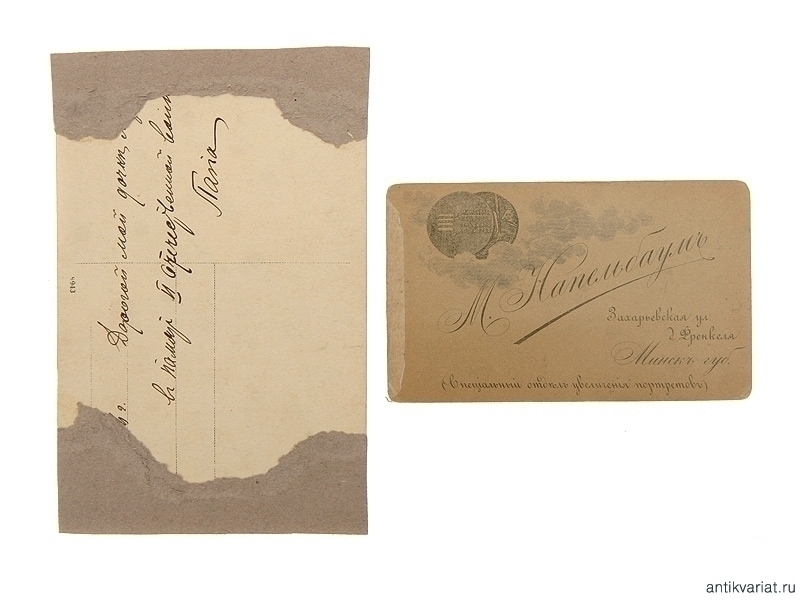 Дорогой мой
в память II Отечественной
Папа
9943
М. Напельбаумъ
Захарьевская ул.
д. Френкеля
Минскъ губ.
(Спецiальный отдѣлъ увеличенiя портретовъ)
antikvariat.ru